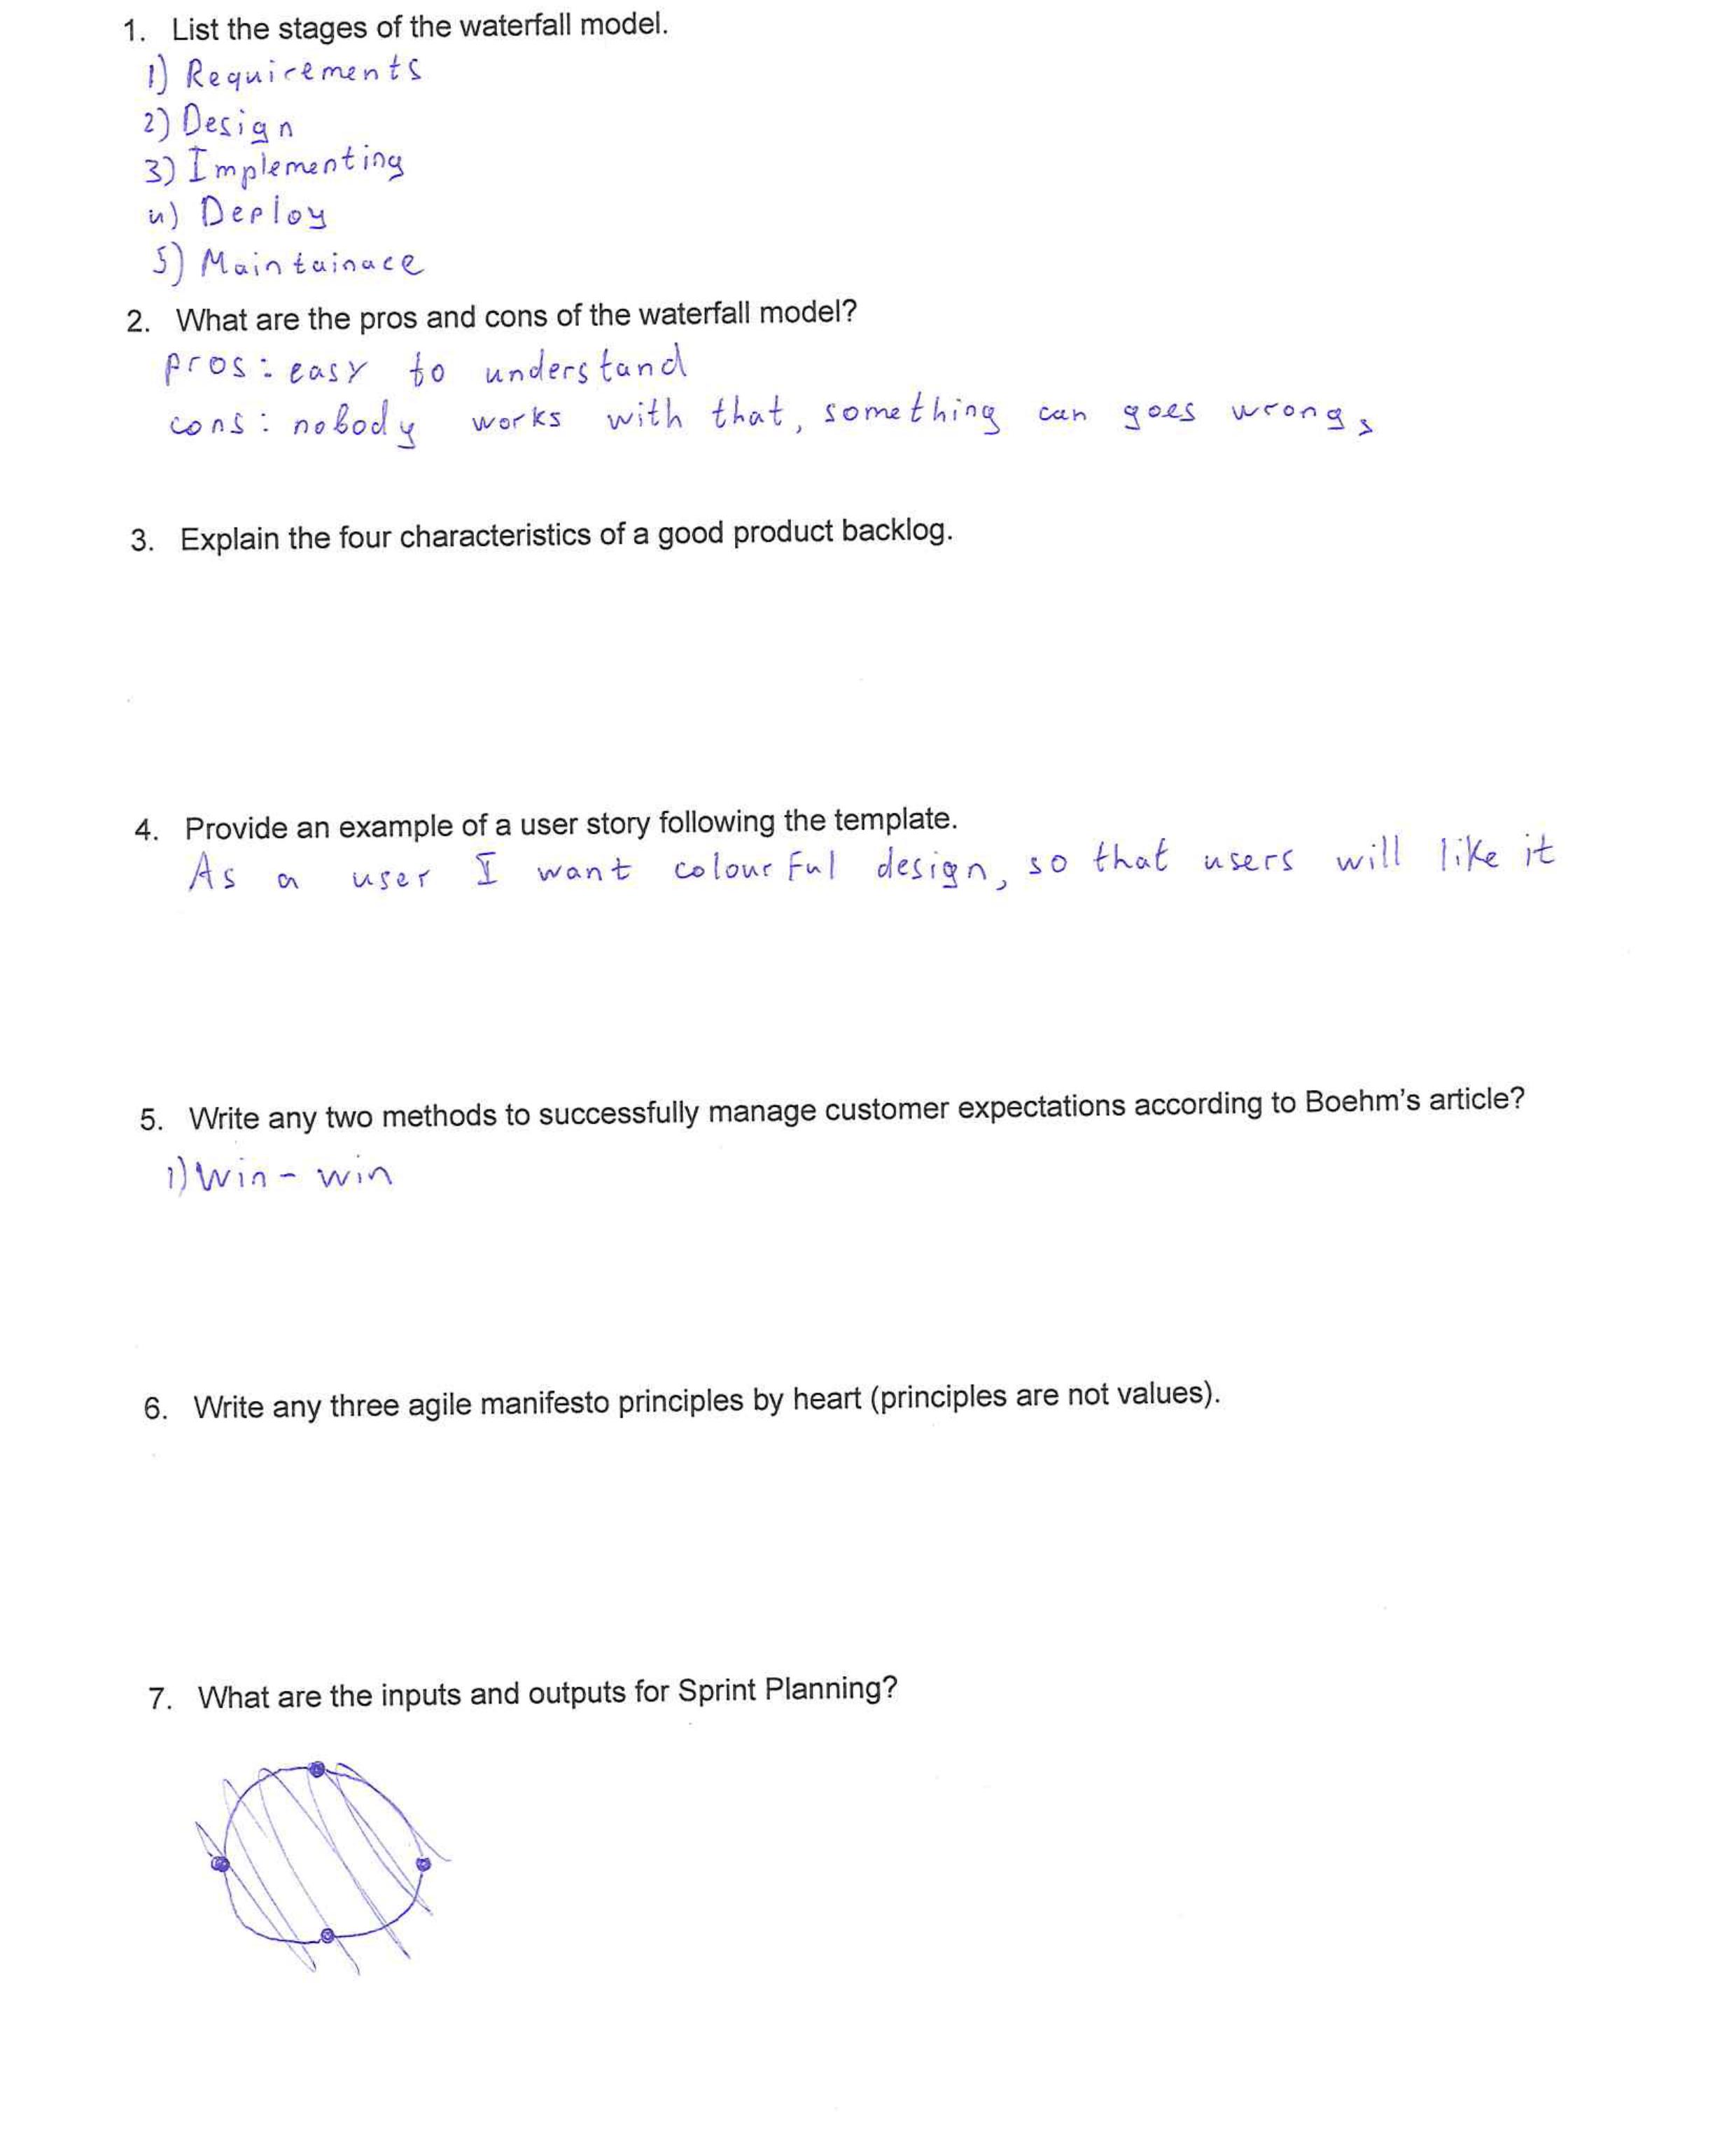 1. List the stages of the waterfall model.
1) Requirements
2) Design
3) Implementing
4) Deploy
5) Maintainace
2. What are the pros and cons of the waterfall model?
pros: easy to understand
cons: nobody works with that, something can goes wrong,
3. Explain the four characteristics of a good product backlog.
4. Provide an example of a user story following the template.
As a user I want colourful design, so that users will like it
5. Write any two methods to successfully manage customer expectations according to Boehm's article?
1) Win - win
6. Write any three agile manifesto principles by heart (principles are not values).
7. What are the inputs and outputs for Sprint Planning?